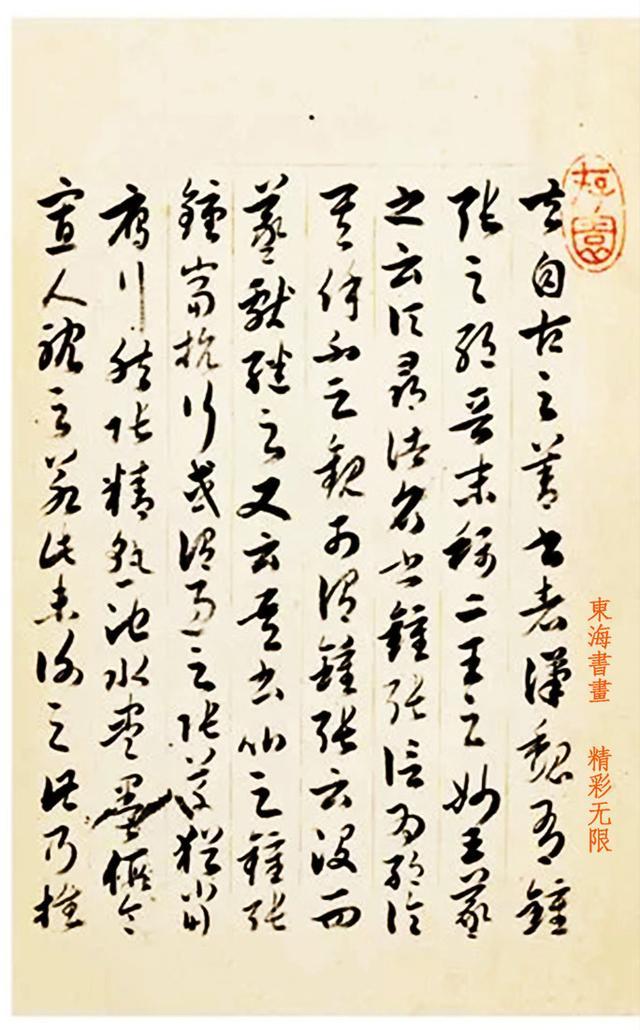 夫自古之善書者漢魏有鍾
張之絕晉末稱二王之妙王羲
之云頃尋諸名書鍾張信為絕倫
其餘不足觀可謂鍾張云沒而
羲獻繼之又云吾書比之鍾張
鍾當抗行或謂過之張草猶當
雁行然張精熟池水盡墨假令
寡人耽之若此未謝之此乃推
東海書畫 精彩无限